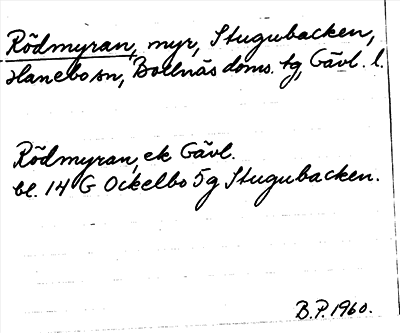 Rödmyran, myr, Stugubacken,
Hanebo sn, Bollnäs doms. tg, Gävl. l.
Rödmyran, ek Gävl.
bl. 14 G Ockelbo 5g Stugubacken.
B.P. 1960.